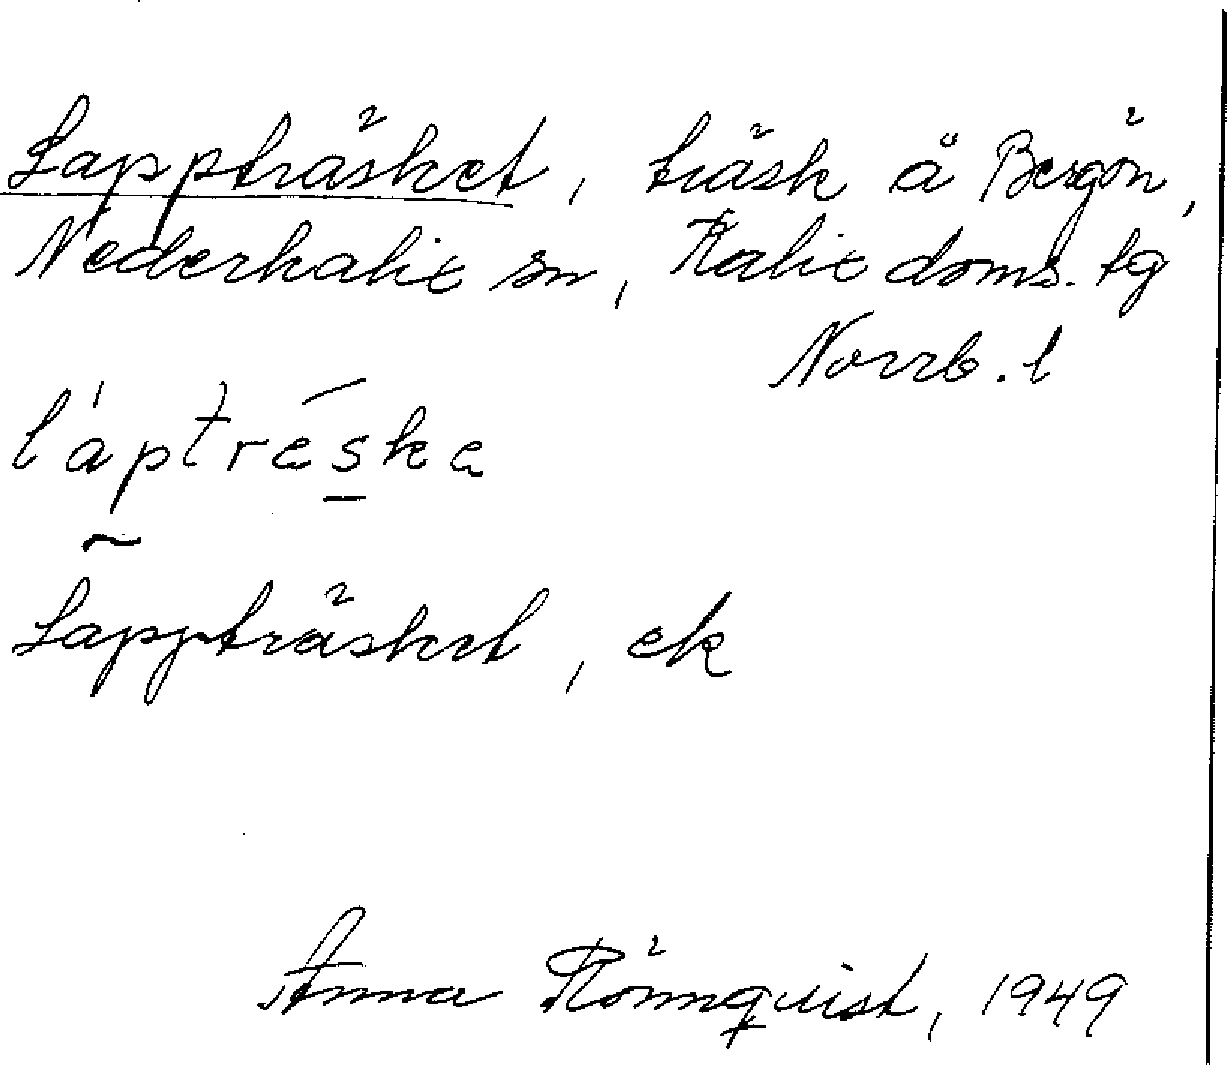 Lappträsket, träsk å Bergön,
Nederkalix sn, Kalix doms. tg
Norrb. l
l'áptrés̲ke
~
Lappträsket, ek
Anna Rönnquist, 1949